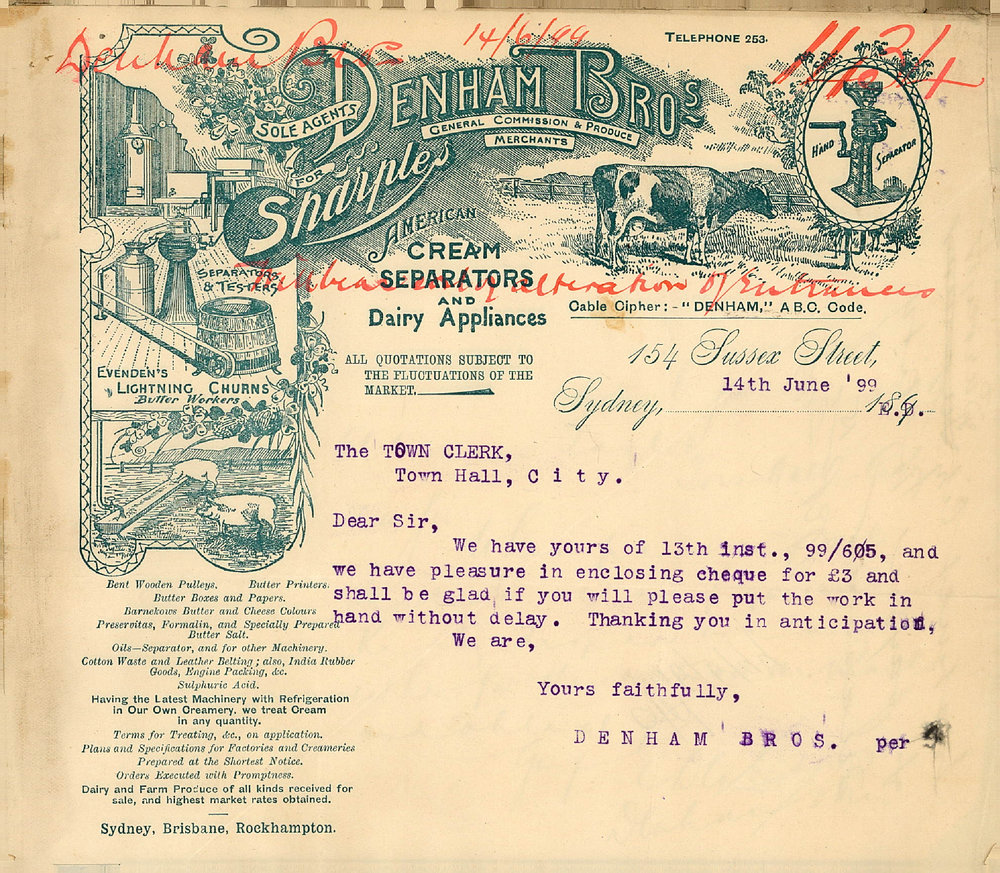 Denham Bros 14/6/99
TELEPHONE 253.
SOLE AGENTS
FOR
DENHAM BROS
GENERAL COMMISSION & PRODUCE
MERCHANTS
Sharples
AMERICAN
CREAM
SEPARATORS
AND
Dairy Appliances
HAND SEPARATOR
SEPARATORS
& TESTERS
alteration of Entrances
Cable Cipher:-"DENHAM," A B.C. Code.
EVENDEN'S
LIGHTNING CHURNS
Butter Workers
ALL QUOTATIONS SUBJECT TO
THE FLUCTUATIONS OF THE
MARKET.
154 Sussex Street,
14th June '99
Sydney, 189
E.D.
The TOWN CLERK,
Town Hall, C i t y.
Dear Sir,
We have yours of 13th inst., 99/605, and
we have pleasure in enclosing cheque for £3 and
shall be glad if you will please put the work in
hand without delay. Thanking you in anticipation,
We are,
Yours faithfully,
D E N H A M B R O S. per
Bent Wooden Pulleys. Butter Printers.
Butter Boxes and Papers.
Barnekows Butter and Cheese Colours
Preservitas, Formalin, and Specially Prepared
Butter Salt.
Oils—Separator, and for other Machinery.
Cotton Waste and Leather Belting; also, India Rubber
Goods, Engine Packing, &c.
Sulphuric Acid.
Having the Latest Machinery with Refrigeration
in Our Own Creamery, we treat Cream
in any quantity.
Terms for Treating, &c., on application.
Plans and Specifications for Factories and Creameries
Prepared at the Shortest Notice.
Orders Executed with Promptness.
Dairy and Farm Produce of all kinds received for
sale, and highest market rates obtained.
Sydney, Brisbane, Rockhampton.